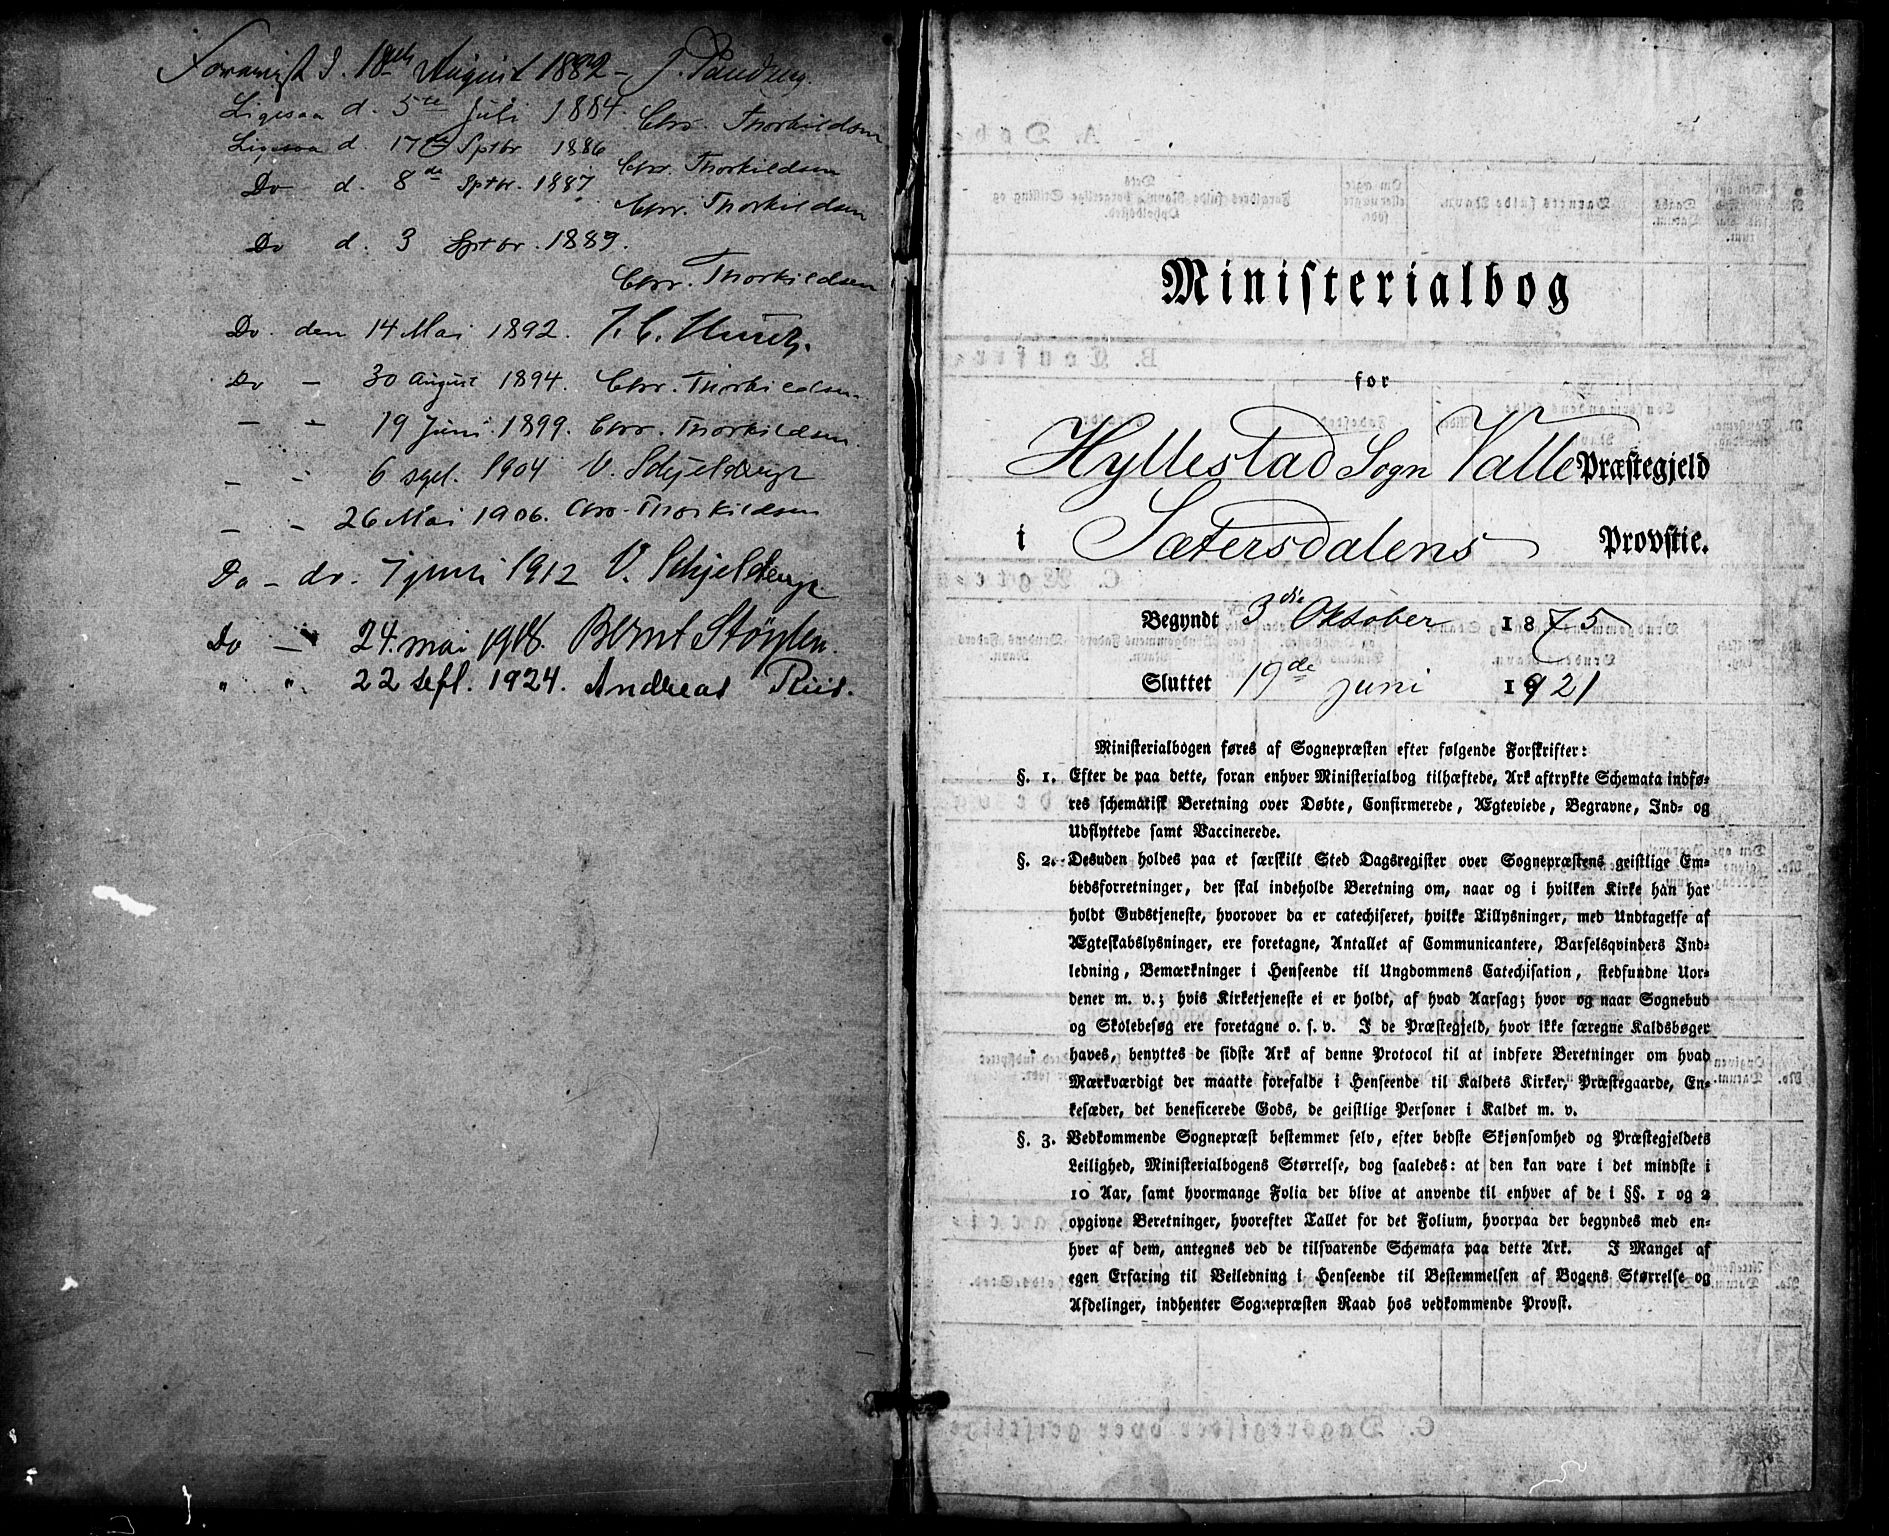 Forevist d. 18de August 1882 –
Ligesaa d. 5te Juli 1884. Chr. Thorkildsen
Ligesaa d. 17de Sptbr 1886 Chr. Thorkildsen
Do d. 8de Sptbr. 1887. Chr. Thorkildsen
Do d. 3 Sptbr. 1889.
Chr. Thorkildsen
Do. den 14 Mai 1892. J. C.
Do – 30 August 1894. Chr. Thorkildsen.
– – 19 Juni 1899. Chr. Thorkildsen.
– – 6 sept. 1904 V. Schjelderup
– – 26 Mai 1906. Chr. Thorkildsen
Do – do. 7 juni 1912 V. Schjelderup
Do – 24. mai 1918. Bernt Støylen.
" ". 22 sept. 1924. Andreas Riis.
Ministerialbog
for
Hyllestad Sogn Valle Præstegjeld
i Sætersdalens Provstie.
Begyndt 3die Oktober 1875
Sluttet 19de Juni 1921
Ministerialbogen føres af Sognepræsten efter følgende Forskrifter:
§. 1. Efter de paa dette, foran enhver Ministerialbog tilhæftede, Ark aftrykte Schemata indfø-
res schematisk Beretning over Døbte, Confirmerede, Ægteviede, Begravne, Ind- og
Udflyttede samt Vaccinerede.
§. 2. Desuden holdes paa et særskilt Sted Dagsregister over Sognepræstens geistlige Em-
bedsforretninger, der skal indeholde Beretning om, naar og i hvilken Kirke han har
holdt Gudstjeneste, hvorover da er catechiseret, hvilke Tillysninger, med Undtagelse af
Ægteskabslysninger, ere foretagne, Antallet af Communicantere, Barselsqvinders Ind-
ledning, Bemærkninger i Henseende til Ungdommens Catechisation, stedfundne Uor-
dener m. v.; hvis Kirketjeneste ei er holdt, af hvad Aarsag; hvor og naar Sognebud
og Skolebesøg ere foretagne o. s. v. I de Præstegjeld, hvor ikke færegne Kaldsbøger
haves, benyttes de sidste Ark af denne Protocol til at indføre Beretninger om hvad
Mærkværdigt der maatte forefalde i Henseende til Kaldets Kirker, Præstegaarde, En-
kesæder, det beneficerede Gods, de geistlige Personer i Kaldet m. v.
§. 3. Vedkommende Sognepræst bestemmer selv, efter bedste Skjønsomhed og Præstegjeldets
Leilighed, Ministerialbogens Størrelse, dog saaledes: at den kan vare i det mindste i
10 Aar, samt hvormange Folia der blive at anvende til enhver af de i §§. 1 og 2
opgivne Beretninger, hvorefter Tallet for det Folium, hvorpaa der begyndes med en-
hver af dem, antegnes ved de tilsvarende Schemata paa dette Ark. I Mangel af
egen Erfaring til Veiledning i Henseende til Bestemmelsen af Bogens Størrelse og
Afdelinger, indhenter Sognepræsten Raad hos vedkommende Provst.